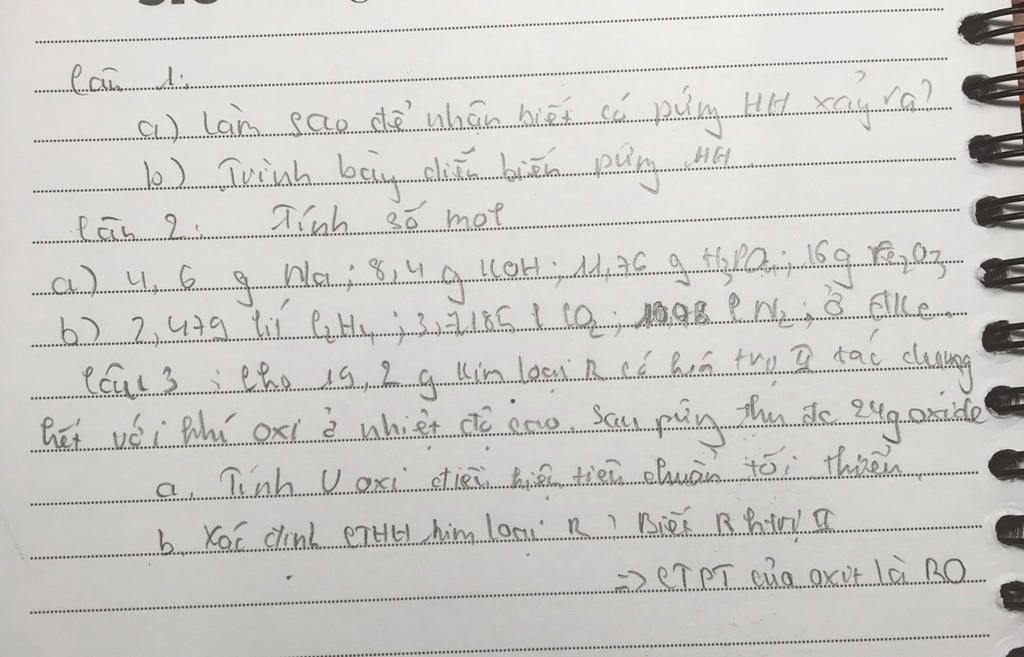 Câu 1:
a) Làm sao để nhận biết có pứng HH xảy ra?
b) Trình bày diễn biến pứng HH.
Câu 2: Tính số mol
a) 4,6 g Na; 8,4 g KOH; 11,76 g H₃PO₄; 16g Fe₂O₃
b) 2,479 lít C₂H₄; 3,7185 l CO₂; l N₂; ở đkc.
Câu 3: Cho 19,2 g kim loại R có hoá trị II tác dụng
hết với khí oxi ở nhiệt độ cao. Sau pứng thu đc 24g oxide
a. Tính V oxi điều kiện tiêu chuẩn tối thiểu
b. Xác định CTHH kim loại R? Biết R htrị II
=> CTPT của oxit là RO